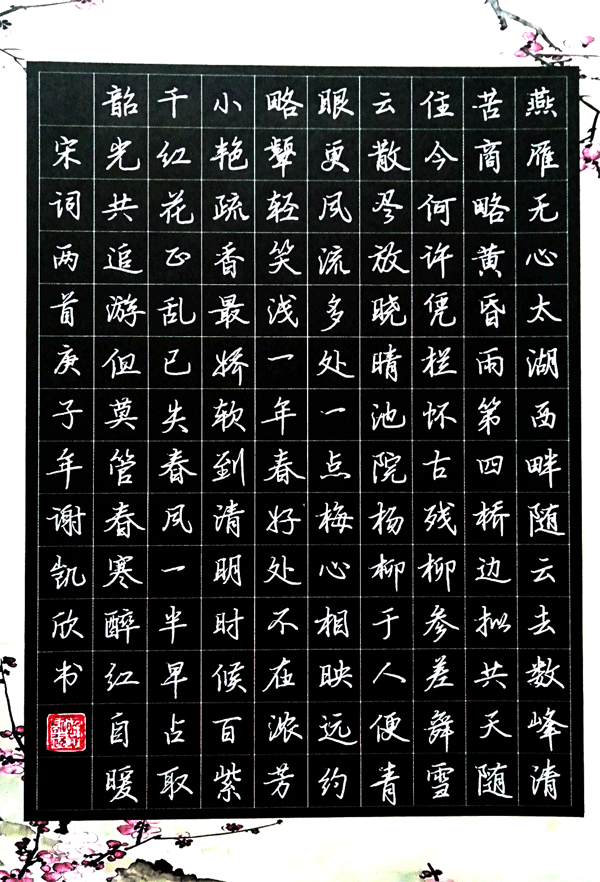 燕雁无心太湖西畔随云去数峰清
苦商略黄昏雨第四桥边拟共天随
住今何许凭栏怀古残柳参差舞雪
云散尽放晓晴池院杨柳于人便青
眼更风流多处一点梅心相映远约
略颦轻笑浅一年春好处不在浓芳
小艳疏香最娇软到清明时候百紫
千红花正乱已失春风一半早占取
韶光共追游但莫管春寒醉红自暖
宋词两首庚子年谢凯欣书